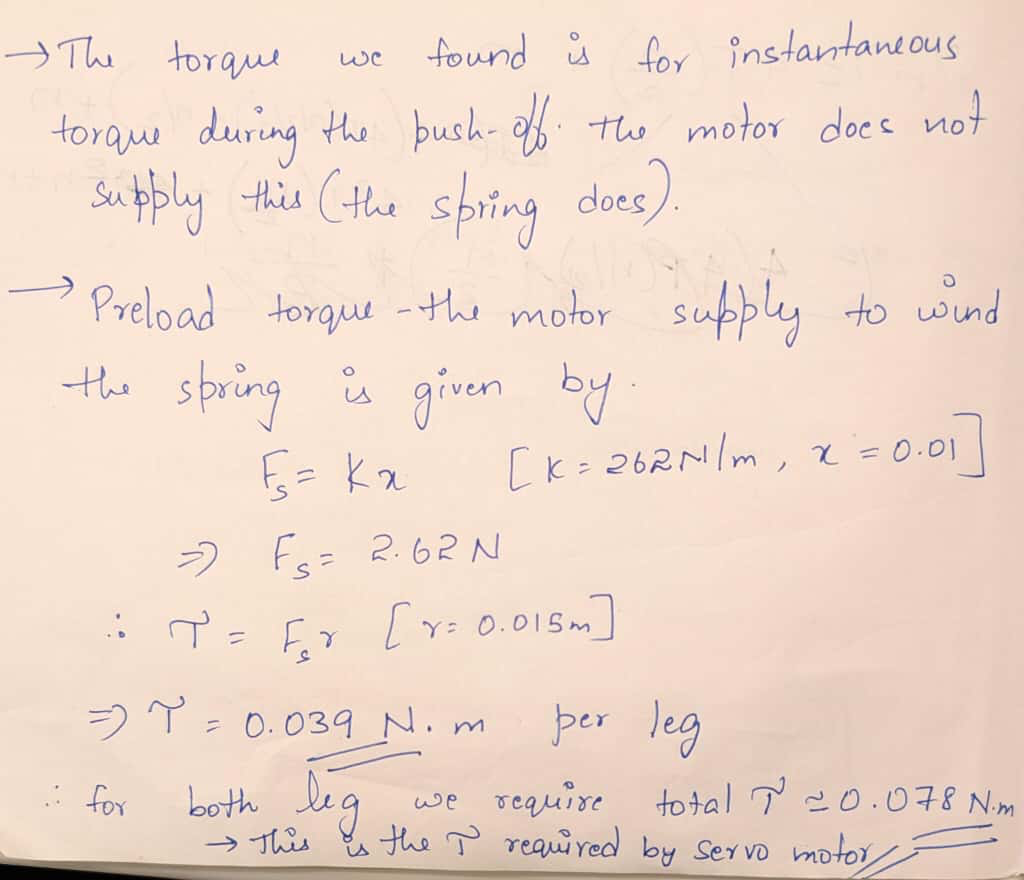 → The torque we found is for instantaneous
torque during the push-off. The motor does not
supply this (the spring does).
→ Preload torque - the motor supply to wind
the spring is given by.
Fs = Kx [K = 262 N/m, x = 0.01]
⇒ Fs = 2.62 N
∴ τ = Fs r [r = 0.015m]
⇒ τ = 0.039 N.m per leg
∴ for both leg we require total τ ≃ 0.078 N.m
→ This is the τ required by servo motor